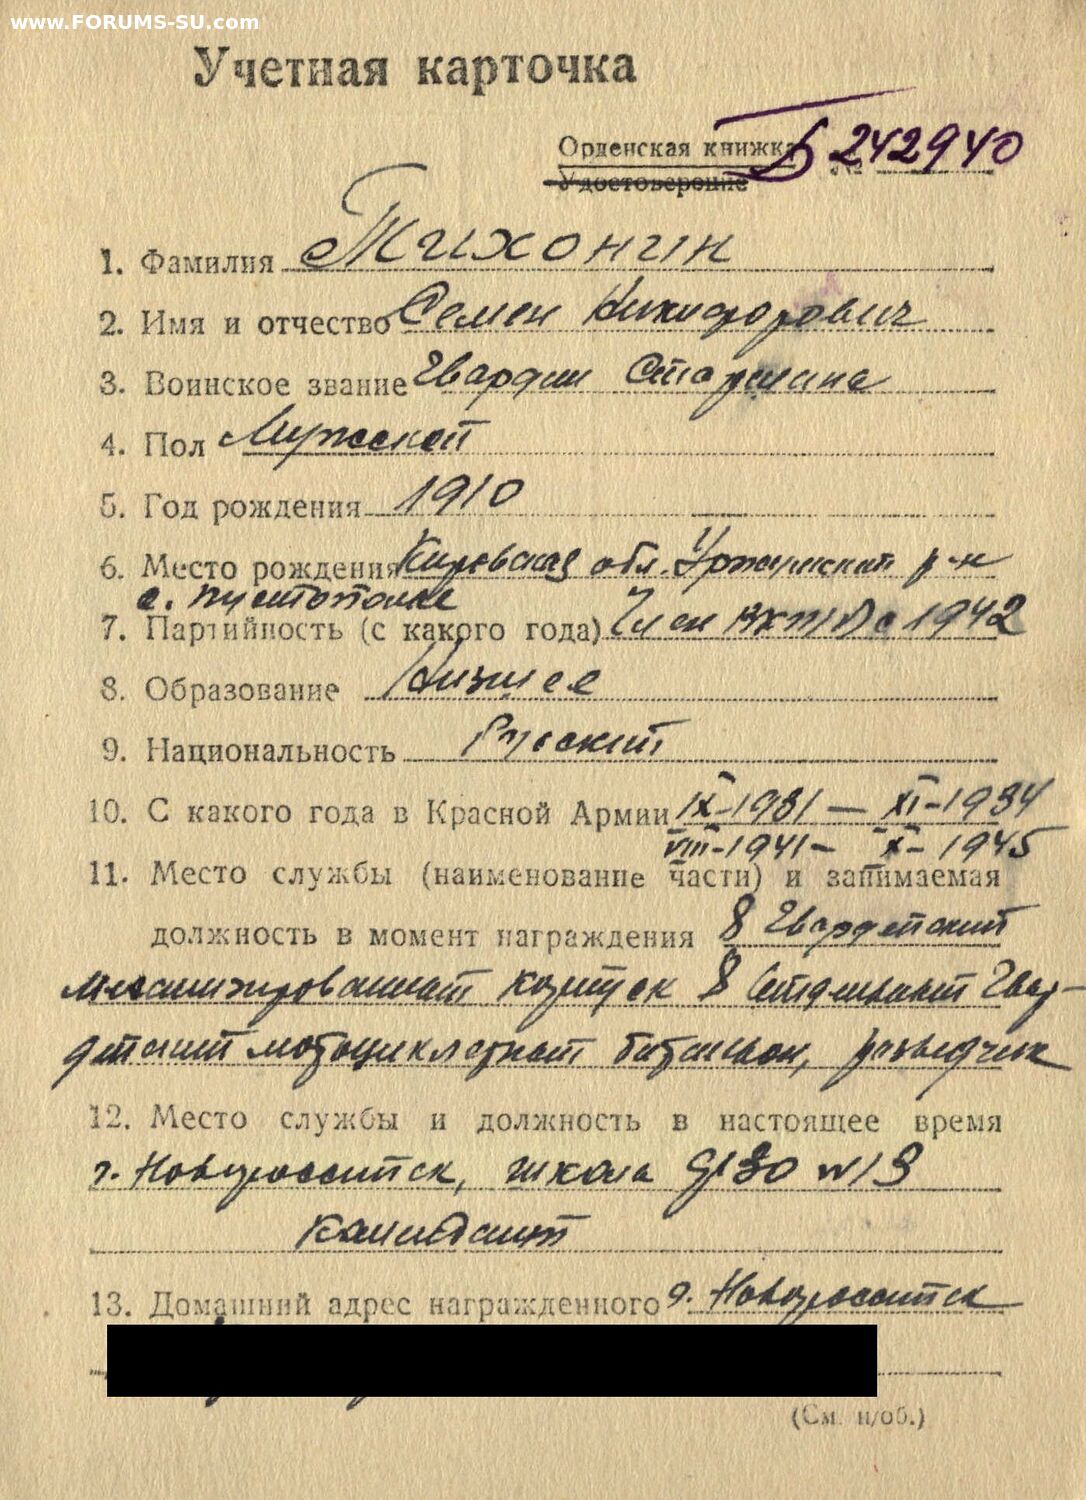 www.FORUMS-SU.com
Учетная карточка
Орденская книжка Б № 242940
Удостоверение
1. Фамилия Тихонин
2. Имя и отчество Семен Никифорович
3. Воинское звание Гвардии Старшина
4. Пол Мужской
5. Год рождения 1910
6. Место рождения Кировская обл. Уржумский р-н
с. Пустополье
7. Партийность (с какого года) Член ВКП/б/ с 1942
8. Образование Низшее
9. Национальность Русский
10. С какого года в Красной Армии IX-1931 — XI-1934
VIII-1941 - X- 1945
11. Место службы (наименование части) и занимаемая
должность в момент награждения 8 Гвардейский
механизированный корпус 8 Отдельный Гвар-
дейский мотоциклетный батальон, разведчик
12. Место службы и должность в настоящее время
г. Новороссийск, школа ФЗО №13
комендант
13. Домашний адрес награжденного г. Новороссийск
(См. н/об.)